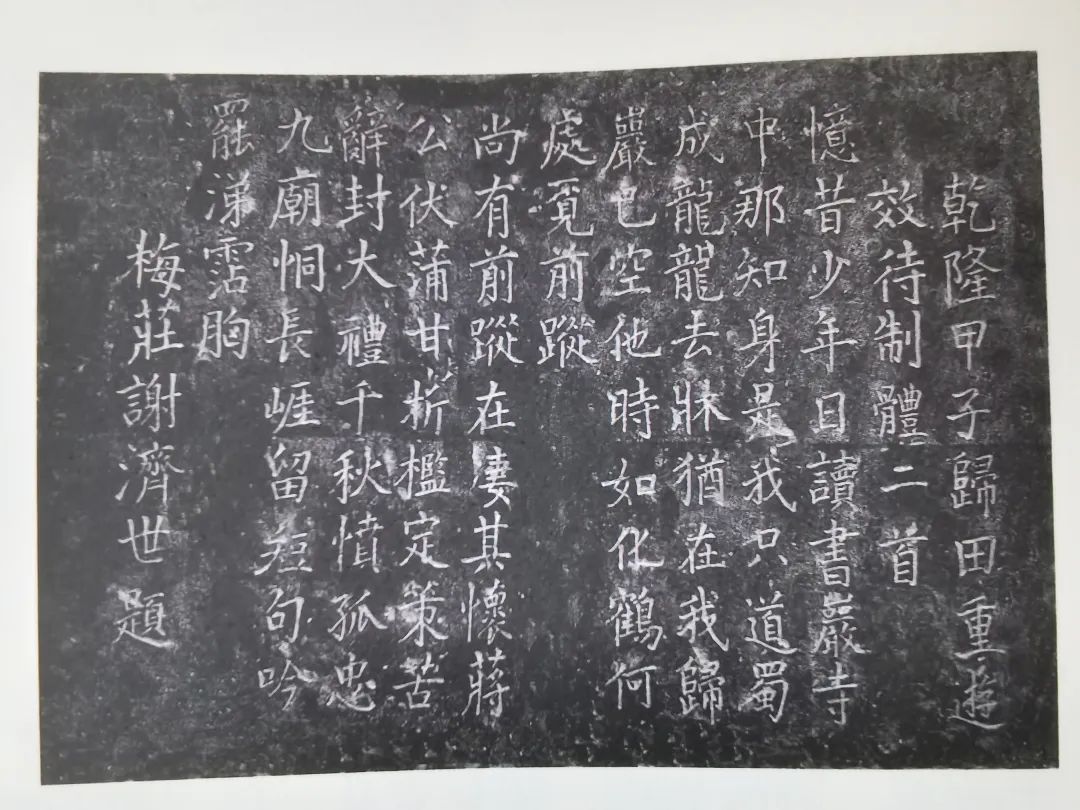 乾隆甲子歸田重遊
效待制體二首
憶昔少年日讀書巖寺
中那知身是我只道蜀
成龍龍去牀猶在我歸
巖已空他時如化鶴何
處覓前蹤
尚有前蹤在淒其懷蔣
公伏蒲甘斨檻定策苦
辭封大禮千秋憤孤忠
九廟恫長崖留短句吟
罷涕霑胸
梅莊謝濟世題